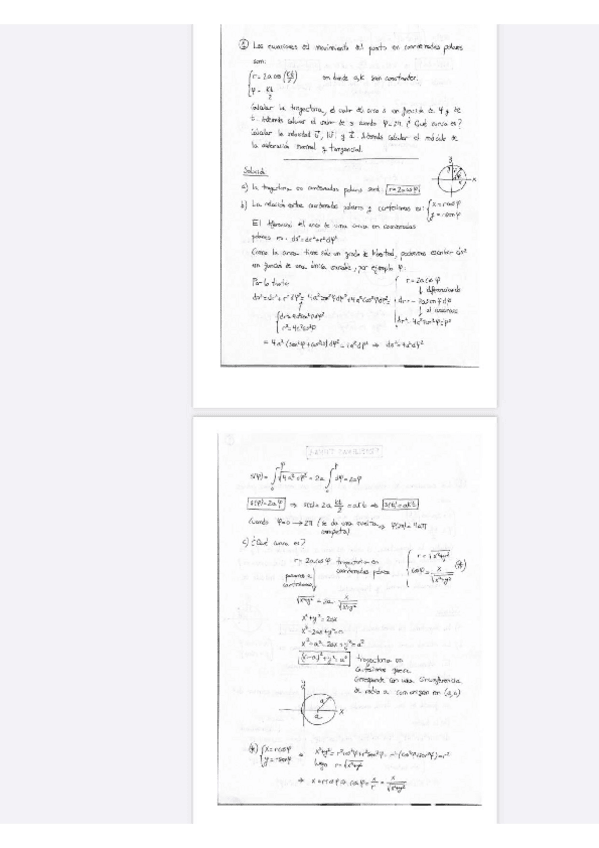 ① Las ecuaciones del movimiento del punto en coordenadas polares
son:
r = 2a cos (kt/2) en donde a,k son constantes.
φ = kt/2
Calcular la trayectoria, el valor del arco s en función de φ y de
t. Además calcular el valor de s cuando φ=2π. ¿Qué curva es?
Calcular la velocidad
Además calcular el módulo de
la aceleración normal y tangencial.
Solución
a) la trayectoria en coordenadas polares será: r=2a cosφ
b) La relación entre coordenadas polares y cartesianas es: x=r cosφ
y=r senφ
El diferencial del arco de una curva en coordenadas
polares es: ds²=dr²+r²dφ²
Como la curva tiene sólo un grado de libertad, podremos escribir ds²
en función de una única variable, por ejemplo φ:
Por lo tanto
r=2a cosφ
diferenciando
dr=-2a senφ dφ
al cuadrado
ds²=dr²+r²dφ²=4a²sen²φdφ²+4a²cos²φdφ²=
r²=4a²cos²φ
=4a²(sen²φ+cos²φ)dφ²=4a²dφ² ⇒ ds²=4a²dφ²
= 2a ∫ dφ=2aφ
s(φ)=2aφ ⇒ s(t)=2a kt/2 = akt ⇒ s(t)=akt
cuando φ=0→2π (se da una vuelta completa) φ(2π)=4aπ
c) ¿Qué curva es?
r=2a cosφ trayectoria en
coordenadas polares
r=√x²+y²
cosφ= x/√x²+y² (*)
pasamos a
cartesianas
√x²+y² = 2a x/√x²+y²
x²+y²=2ax
x²-2ax+y²=0
x²+a²-2ax+y²=a²
(x-a)²+y²=a² trayectoria en
cartesianas que se
corresponde con una circunferencia
de radio a con origen en (a,0)
y
a
a
x
(*) x=r cosφ
y=r senφ
⇒ x²+y²=r²cos²φ+r²sen²φ=r²(cos²φ+sen²φ)=r²
luego r=√x²+y²
⇒ x=r cosφ ⇒ cosφ= x/r = x/√x²+y²